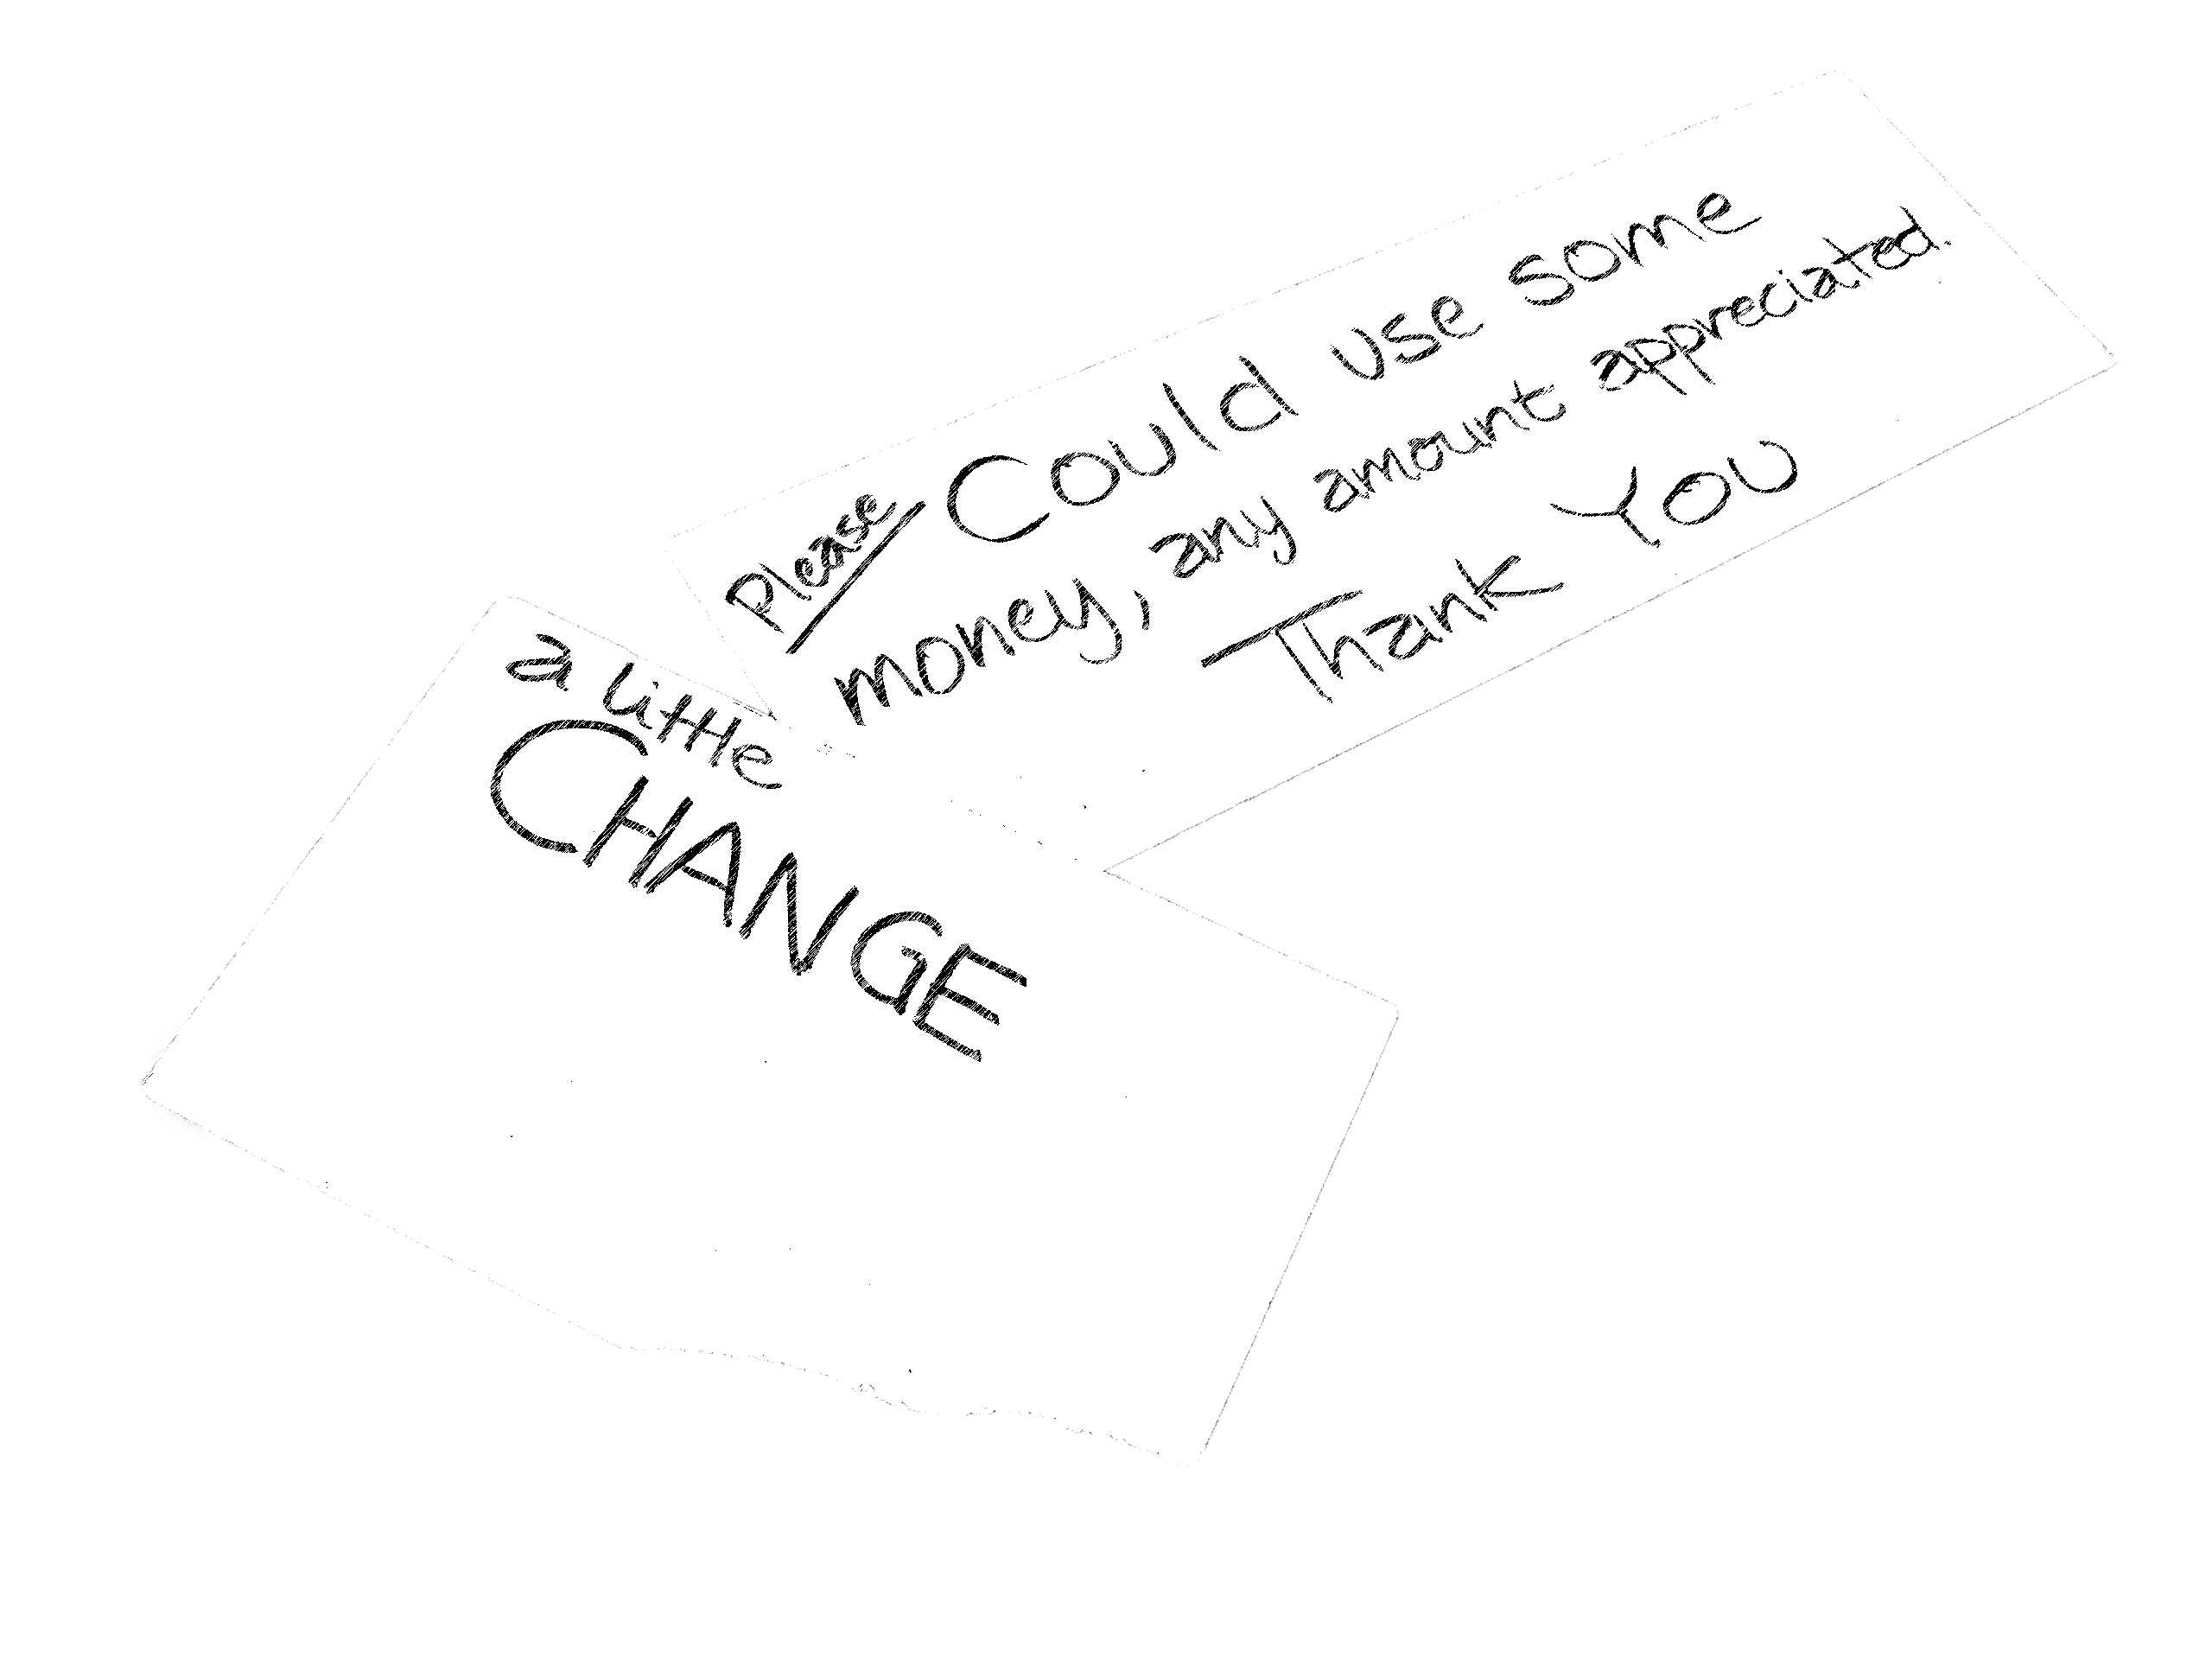 Please Could use some
money, any amount appreciated.
Thank You
a little
CHANGE